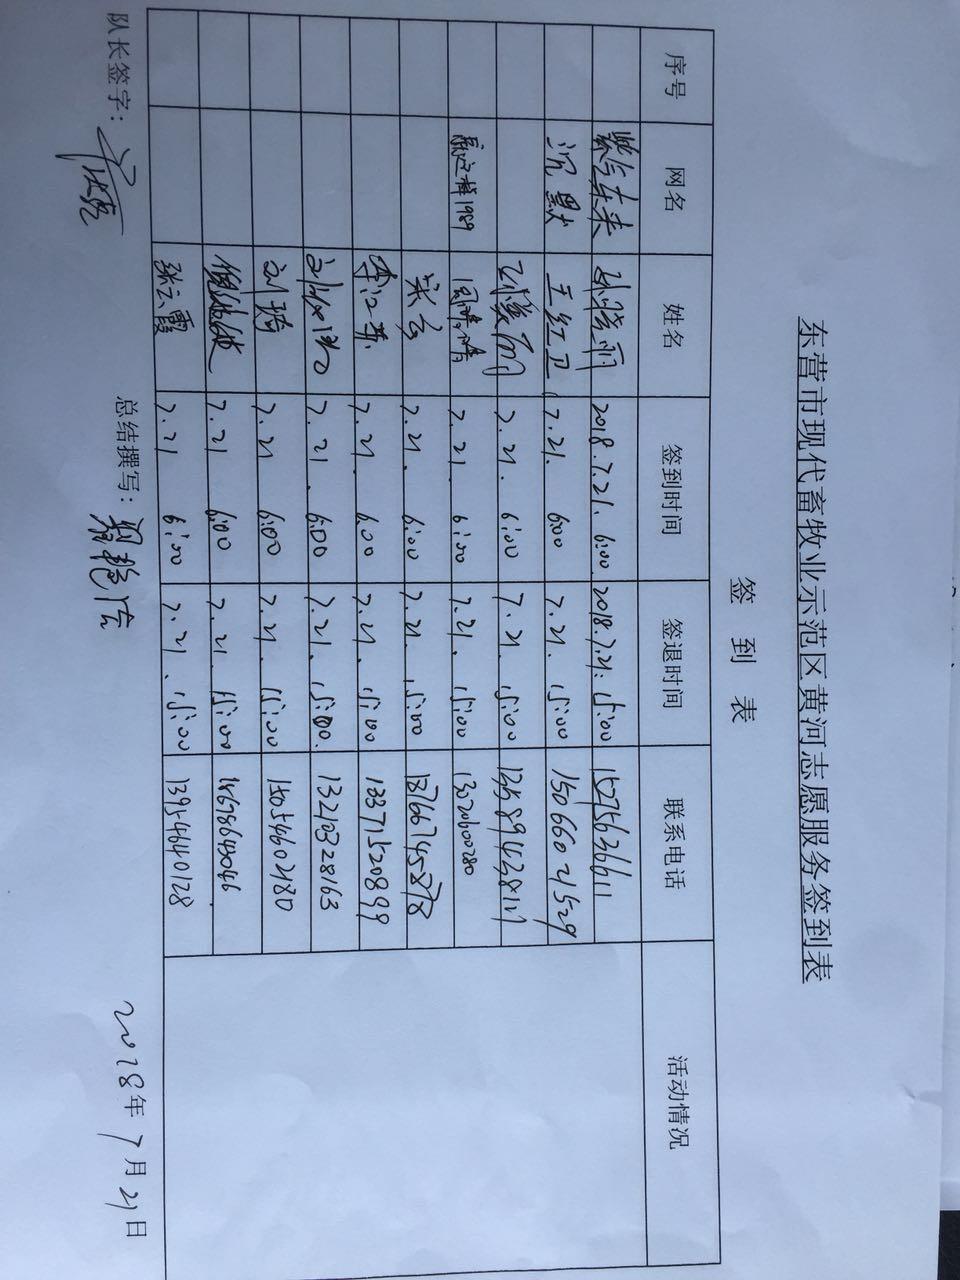 东营市现代畜牧业示范区黄河志愿服务签到表
签 到 表
序号 网名 姓名 签到时间 签退时间 联系电话 活动情况
紫气东来 孙修丽 2018.7.21. 6:00 2018.7.21. 15:00 15275636611
沉默 王红卫 7.21. 6:00 7.21. 15:00 15066021529
7.21. 6:00 7.21. 15:00
就这样1989 周倩倩 7.21. 6:00 7.21. 15:00
梁云 7.21. 6:00 7.21. 15:00
李江燕 7.21. 6:00 7.21. 15:00 13371520899
7.21. 6:00 7.21. 15:00. 13210328163
刘琦 7.21. 6:00 7.21. 15:00 15054602180
7.21 6:00 7.21. 15:00
张云霞 7.21 6:00 7.21. 15:00 13954640128
队长签字： 总结撰写： 2018年7月21日